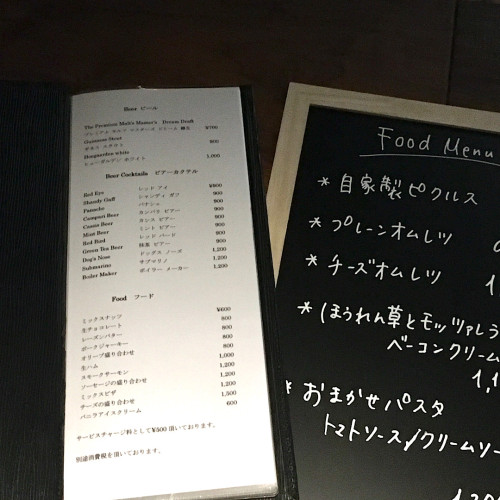 Beer ビール
The Premium Malt's Master's Dream Draft
プレミアム モルツ マスターズ ドリーム 樽生 ¥700
Guinness Stout
ギネス スタウト 800
Hoegaarden white
ヒューガルデン ホワイト 1,000
Beer Cocktails ビアーカクテル
Red Eye レッド アイ ¥800
Shandy Gaff シャンディ ガフ 900
Panache パナシェ 900
Campari Beer カンパリ ビアー 900
Cassis Beer カシス ビアー 900
Mint Beer ミント ビアー 900
Red Bird レッド バード 900
Green Tea Beer 抹茶 ビアー 900
Dog's Nose ドッグス ノーズ 1,200
Submarino サブマリノ 1,200
Boiler Maker ボイラー メーカー 1,200
Food フード
ミックスナッツ ¥600
生チョコレート 800
レーズンバター 800
ポークジャーキー 800
オリーブ盛り合わせ 800
生ハム 1,000
スモークサーモン 1,200
ソーセージの盛り合わせ 1,200
ミックスピザ 1,200
チーズの盛り合わせ 1,500
バニラアイスクリーム 600
サービスチャージ料として¥500頂いております。
別途消費税を頂いております。
Food Menu
*自家製ピクルス
*プレーンオムレツ
*チーズオムレツ
*ほうれん草とモッツァレラ
ベーコンクリーム
1,1
*おまかせパスタ
トマトソース/クリームソー